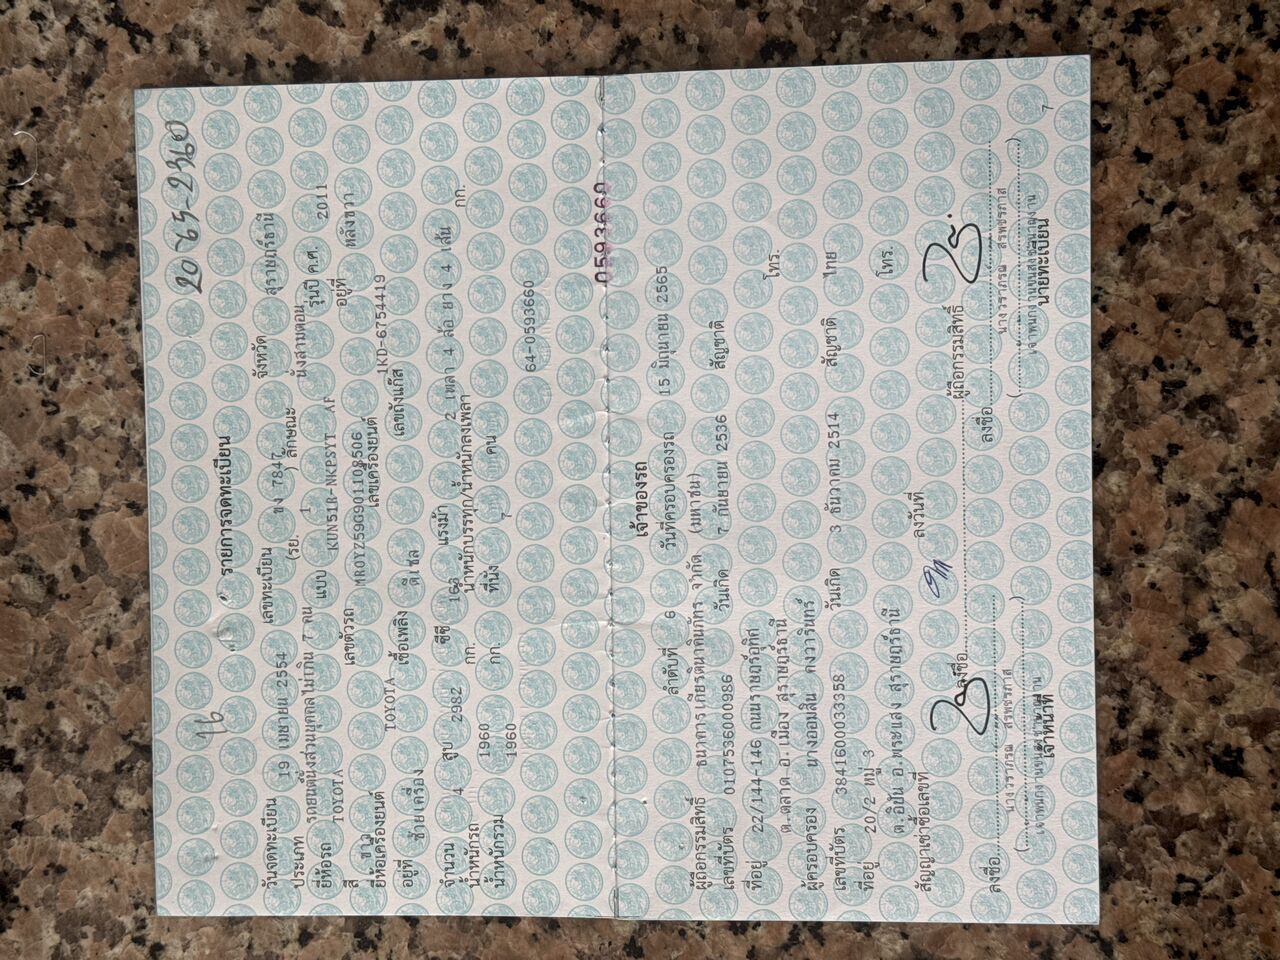 16
20 65-2360
รายการจดทะเบียน
วันจดทะเบียน 19 เมษายน 2554 เลขทะเบียน ขง 7847 จังหวัด สุราษฎร์ธานี
ประเภท รถยนต์นั่งส่วนบุคคลไม่เกิน 7 คน (รย. 1 ) ลักษณะ นั่งสามตอน
ยี่ห้อรถ TOYOTA แบบ KUN51R-NKPSYT AF รุ่นปี ค.ศ. 2011
สี ขาว เลขตัวรถ MR0YZ59G901108506 อยู่ที่ หลังขวา
ยี่ห้อเครื่องยนต์ TOYOTA เลขเครื่องยนต์ 1KD-6754419
อยู่ที่ ซ้ายเครื่อง เชื้อเพลิง ดีเซล เลขถังแก๊ส
จำนวน 4 สูบ 2982 ซีซี 163 แรงม้า 2 เพลา 4 ล้อ ยาง 4 เส้น
น้ำหนักรถ 1960 กก. น้ำหนักบรรทุก/น้ำหนักลงเพลา กก.
น้ำหนักรวม 1960 กก. ที่นั่ง 7 คน
64-0593660
0593660
เจ้าของรถ
ลำดับที่ 6 วันที่ครอบครองรถ 15 มิถุนายน 2565
ผู้ถือกรรมสิทธิ์ ธนาคารเกียรตินาคินภัทร จำกัด (มหาชน)
เลขที่บัตร 0107536000986 วันเกิด 7 กันยายน 2536 สัญชาติ
ที่อยู่ 22/144-146 ถนนราษฎร์อุทิศ
ต.ตลาด อ.เมือง สุราษฎร์ธานี โทร.
ผู้ครอบครอง นางออมสิน คงวารินทร์
เลขที่บัตร 3841600033358 วันเกิด 3 ธันวาคม 2514 สัญชาติ ไทย
ที่อยู่ 20/2 หมู่ 3
ต.อิปัน อ.พระแสง สุราษฎร์ธานี โทร.
สัญญาเช่าซื้อเลขที่ ลงวันที่
ลงชื่อ ผู้ถือกรรมสิทธิ์
ลงชื่อ ลงชื่อ
เจ้าหน้าที่ นายทะเบียน
7